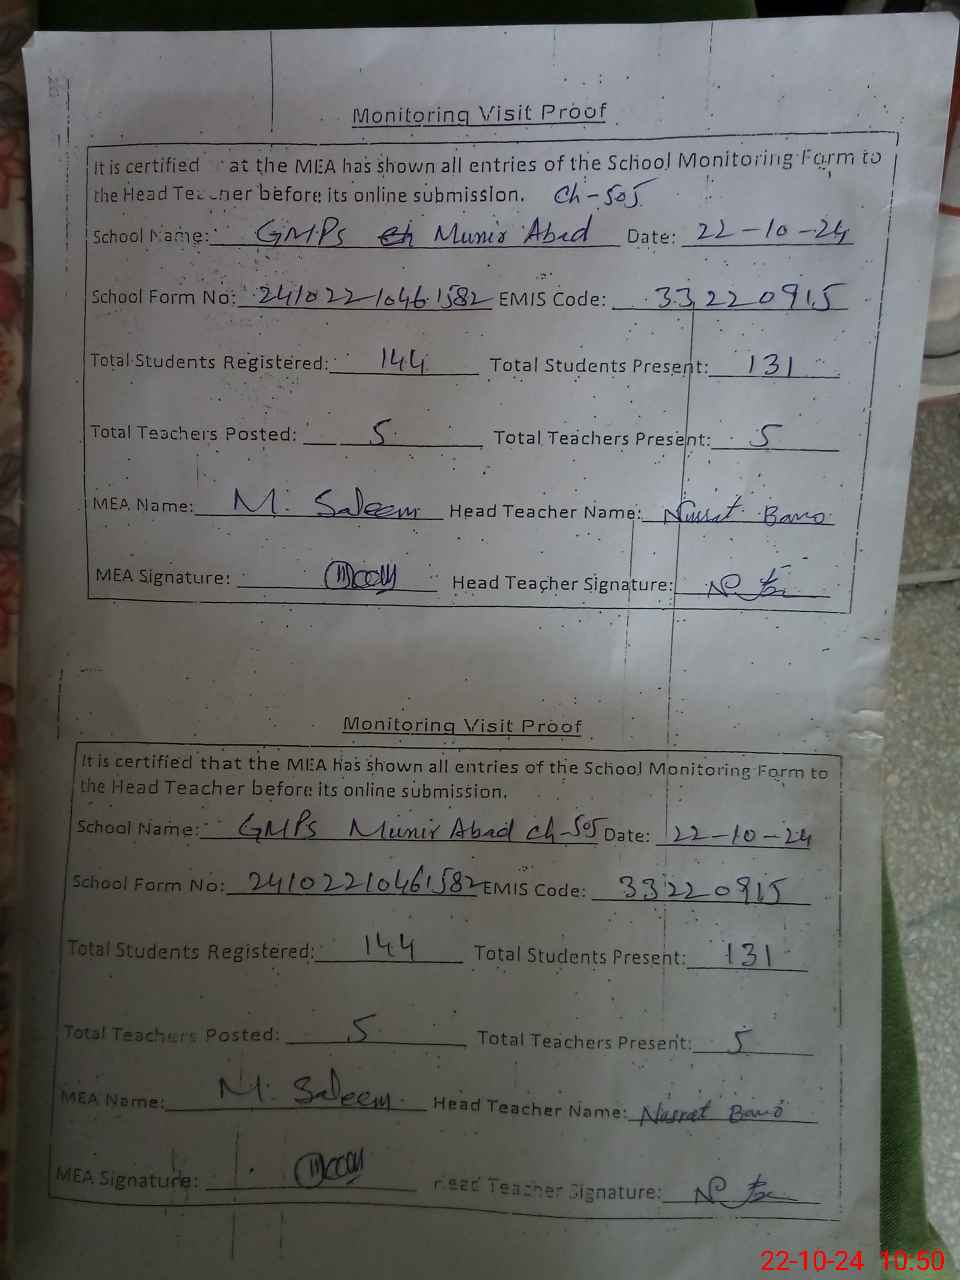 Monitoring Visit Proof
It is certified at the MEA has shown all entries of the School Monitoring Form to
the Head Teacher before its online submission. Ch-505
School Name: GMPS Munir Abad Date: 22-10-24
School Form No: 24102210461582 EMIS Code: 33220915
Total Students Registered: 144 Total Students Present: 131
Total Teachers Posted: 5 Total Teachers Present: 5
MEA Name: M. Saleem Head Teacher Name: Nusrat Bano
MEA Signature: Head Teacher Signature:
Monitoring Visit Proof
It is certified that the MEA has shown all entries of the School Monitoring Form to
the Head Teacher before its online submission.
School Name: GMPS Munir Abad ch-505 Date: 22-10-24
School Form No: 24102210461582 EMIS Code: 33220915
Total Students Registered: 144 Total Students Present: 131
Total Teachers Posted: 5 Total Teachers Present: 5
MEA Name: M. Saleem Head Teacher Name: Nusrat Bano
MEA Signature: Head Teacher Signature:
22-10-24 10:50